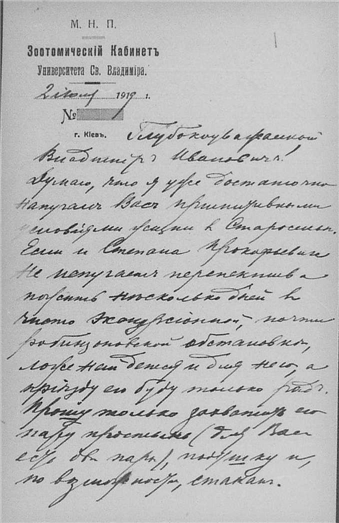 М. Н. П.
Зоотомическій Кабинетъ
Университета Св. Владиміра.
2 іюля 1919 г.
№
г. Кіевъ.
Глубокоуважаемый
Владиміръ Ивановичъ!
Думаю, что я уже достаточно
напугалъ Васъ примитивными
условіями жизни в Старосельи.
Если и Степана Прокофьевича
не пугаетъ перспектива
пожить нѣсколько дней в
чисто экскурсіонной, почти
робинзоновской обстановке,
ложе найдется и для него, а
пріѣзду его буду только радъ.
Прошу только захватить его
пару простынь (для Васъ
есть две пары), подушку и,
по возможности, стаканъ.